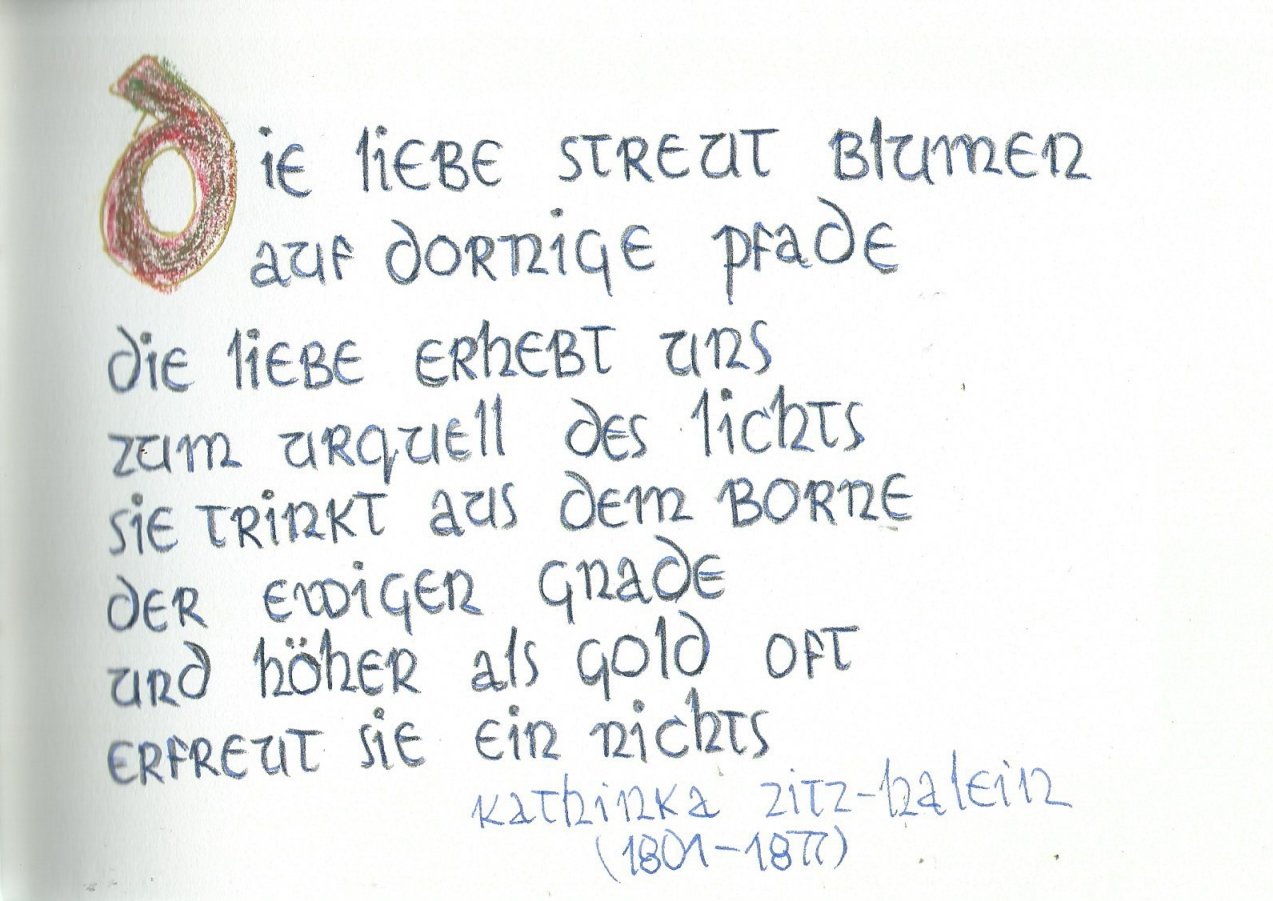 die liebe streut blumen
auf dornige pfade
die liebe erhebt uns
zum urquell des lichts
sie trinkt aus dem borne
der ewigen gnade
und höher als gold oft
erfreut sie ein nichts
kathinka zitz-halein
(1801-1877)